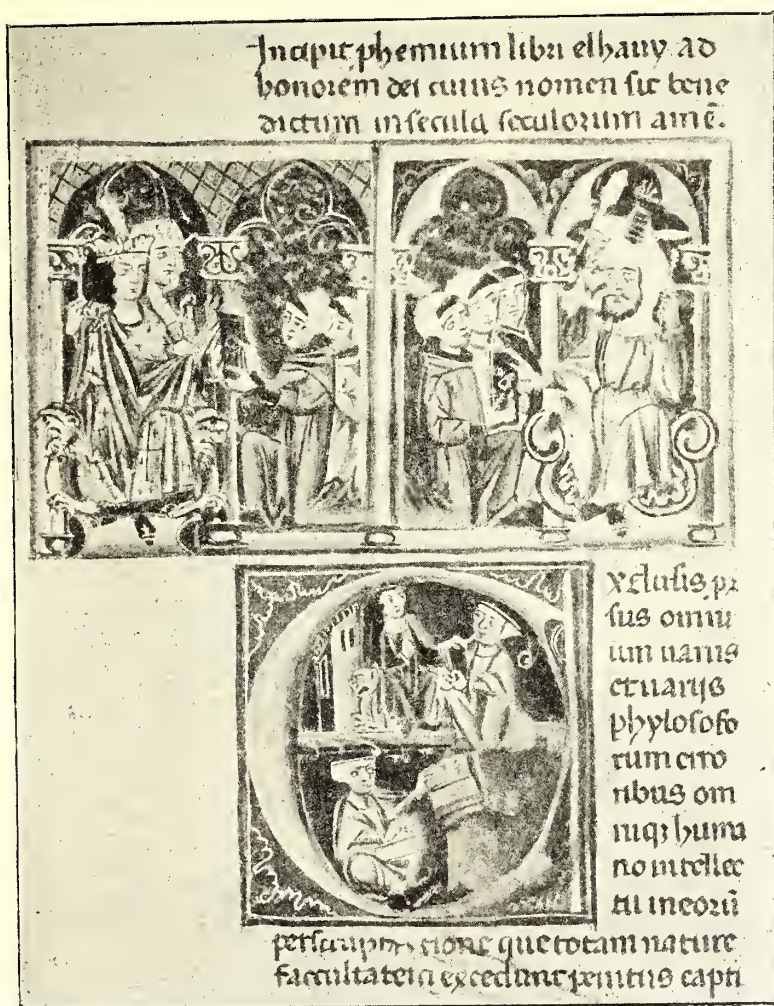 Incipit phemium libri elhauy ad
honorem dei cuius nomen sit bene
dictum in secula seculorum amē.
xclusis pr
sus omni
um uanis
et uarijs
phylosofo
rum erro
ribus om
niqꝫ huma
no intellec
tu in eorū
tione que totam nature
faccultatem excedunt penitus capti